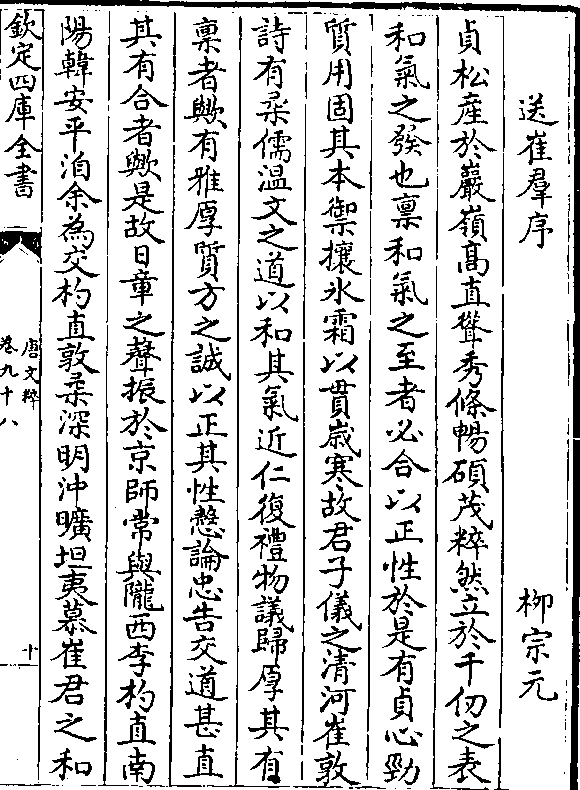 送崔羣序 柳宗元
貞松產於巖嶺髙直聳秀條暢碩茂粹然立於千仞之表
和氣之發也稟和氣之至者必合以正性於是有貞心勁
質用固其本禦攘氷霜以貫歳寒故君子儀之清河崔敦
詩有柔儒溫文之道以和其氣近仁復禮物議歸厚其有
稟者歟有雅厚質方之誠以正其性慤論忠告交道甚直
其有合者歟是故日章之聲振於京師常與隴西李杓直南
陽韓安平洎余為交杓直敦柔深明沖曠坦夷慕崔君之和
欽定四庫全書
唐文粹
卷九十八
十